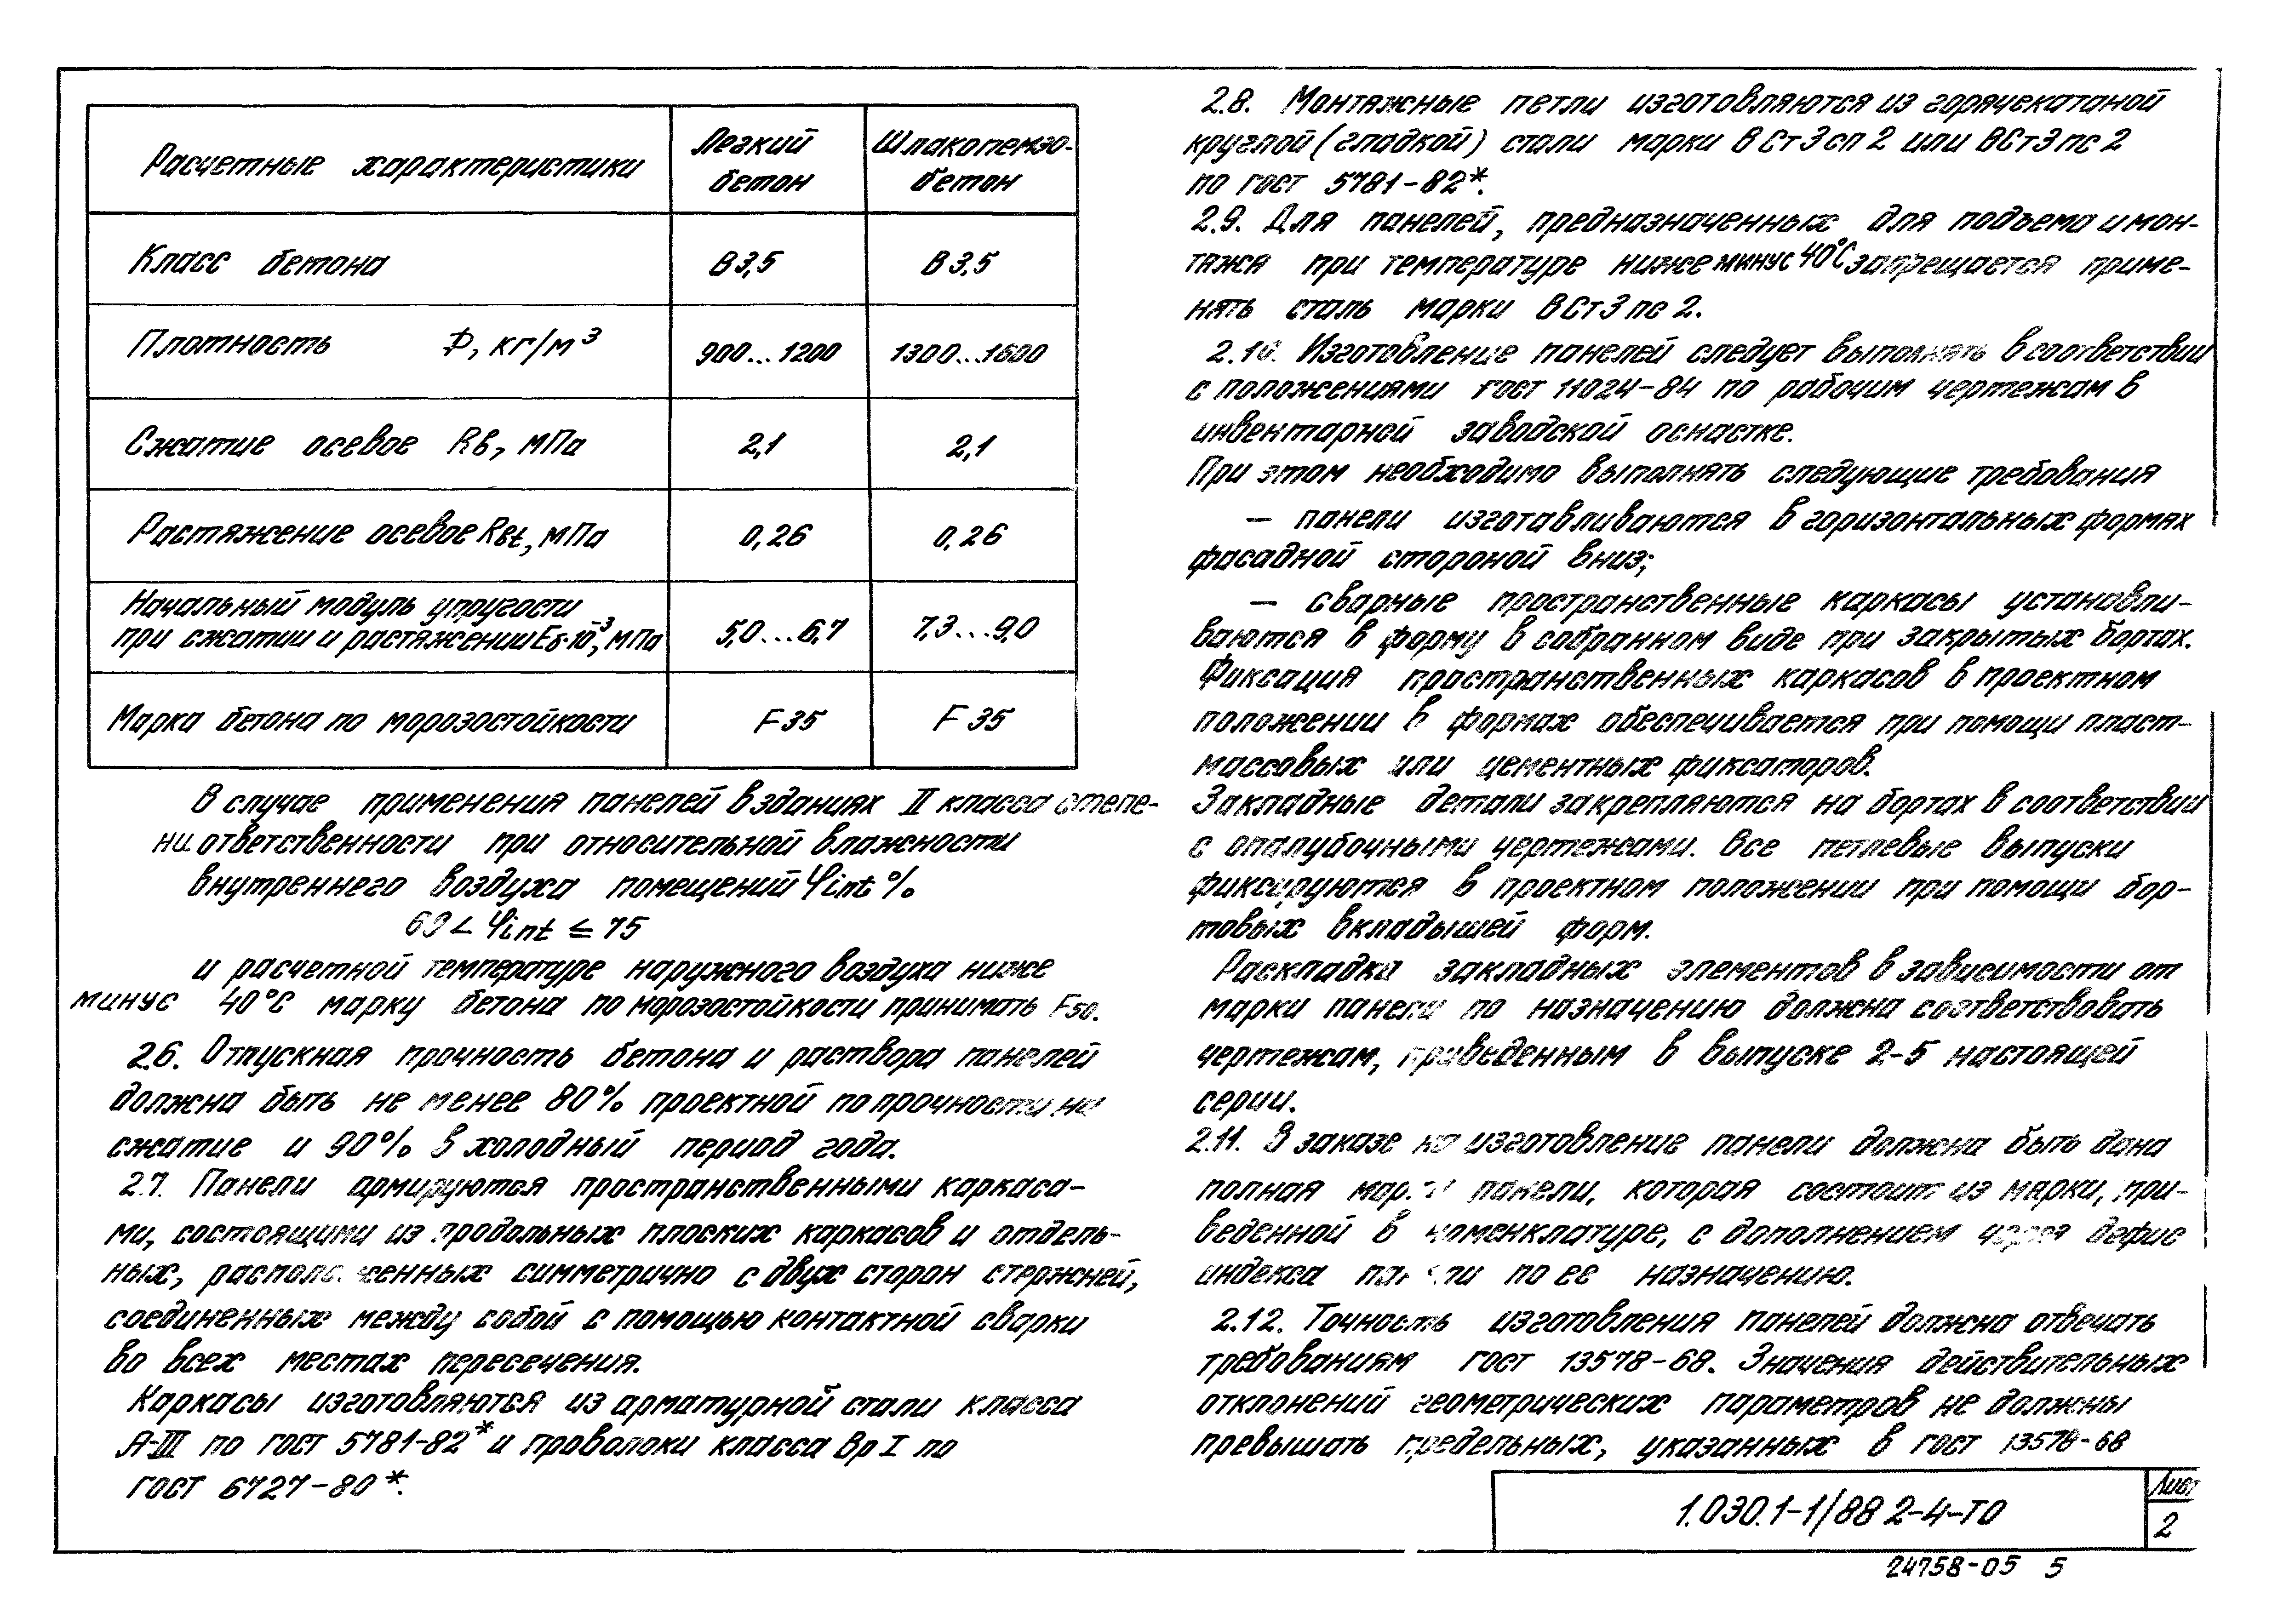 Расчетные характеристики
Легкий
бетон
Шлакопемзо-
бетон
Класс бетона
В3,5
В3,5
Плотность
, кг/м³
900...1200
1300...1600
Сжатие осевое Rв, МПа
2,1
2,1
Растяжение осевое Rвt, МПа
0,26
0,26
Начальный модуль упругости
при сжатии и растяжении Еб·10⁻³, МПа
5,0...6,7
7,3...9,0
Марка бетона по морозостойкости
F 35
F 35
В случае применения панелей в зданиях II класса степе-
ни ответственности при относительной влажности
внутреннего воздуха помещений φint %
60 < φint ≤ 75
и расчетной температуре наружного воздуха ниже
минус 40°С марку бетона по морозостойкости принимать F50.
2.6. Отпускная прочность бетона и раствора панелей
должна быть не менее 80% проектной по прочности на
сжатие и 90% в холодный период года.
2.7. Панели армируются пространственными каркаса-
ми, состоящими из продольных плоских каркасов и отдель-
ных, расположенных симметрично с двух сторон стержней,
соединенных между собой с помощью контактной сварки
во всех местах пересечения.
Каркасы изготовляются из арматурной стали класса
А-III по ГОСТ 5781-82* и проволоки класса Вр I по
ГОСТ 6727-80*.
2.8. Монтажные петли изготовляются из горячекатаной
круглой (гладкой) стали марки ВСт3сп2 или ВСт3пс2
по ГОСТ 5781-82*.
2.9. Для панелей, предназначенных для подъема и мон-
тажа при температуре ниже минус 40°С запрещается приме-
нять сталь марки ВСт3пс2.
2.10. Изготовление панелей следует выполнять в соответствии
с положениями ГОСТ 11024-84 по рабочим чертежам в
инвентарной заводской оснастке.
При этом необходимо выполнять следующие требования
— панели изготавливаются в горизонтальных формах
фасадной стороной вниз;
— сварные пространственные каркасы устанавли-
ваются в форму в собранном виде при закрытых бортах.
Фиксация пространственных каркасов в проектном
положении в формах обеспечивается при помощи пласт-
массовых или цементных фиксаторов.
Закладные детали закрепляются на бортах в соответствии
с опалубочными чертежами. Все петлевые выпуски
фиксируются в проектном положении при помощи бор-
товых вкладышей форм.
Раскладка закладных элементов в зависимости от
марки панели по назначению должна соответствовать
чертежам, приведенным в выпуске 2-5 настоящей
серии.
2.11. В заказе на изготовление панели должна быть дана
полная марка панели, которая состоит из марки, при-
веденной в номенклатуре, с дополнением через дефис
индекса панели по ее назначению.
2.12. Точность изготовления панелей должна отвечать
требованиям ГОСТ 13578-68. Значения действительных
отклонений геометрических параметров не должны
превышать предельных, указанных в ГОСТ 13578-68
1.030.1-1/88 2-4-ТО
Лист
2
24758-05 5